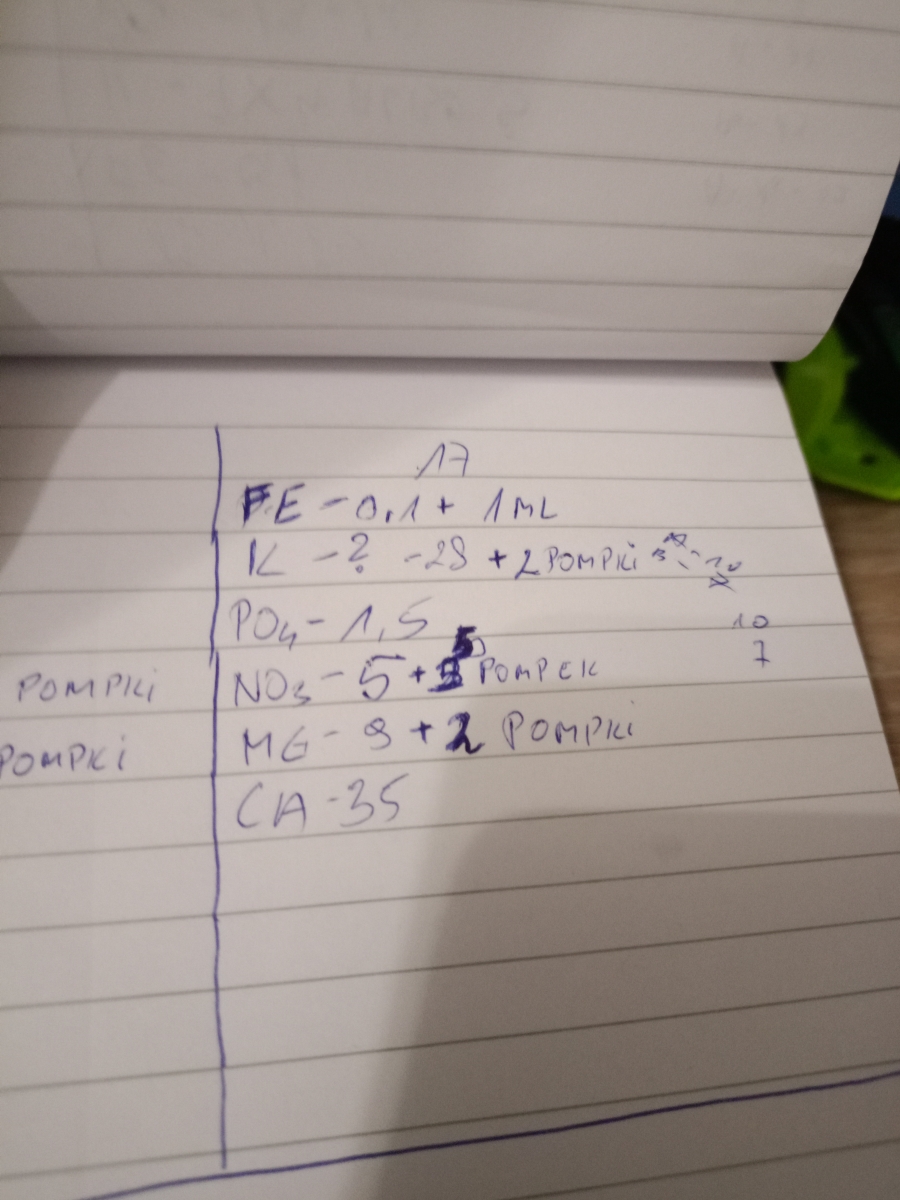 17
FE - 0,1 + 1 ML
K - ? - 28 + 2 POMPKi
PO4 - 1,5
10
7
POMPKi
NO3 - 5 + 5 POMPEK
POMPKi
MG - 9 + 2 POMPKi
CA - 35